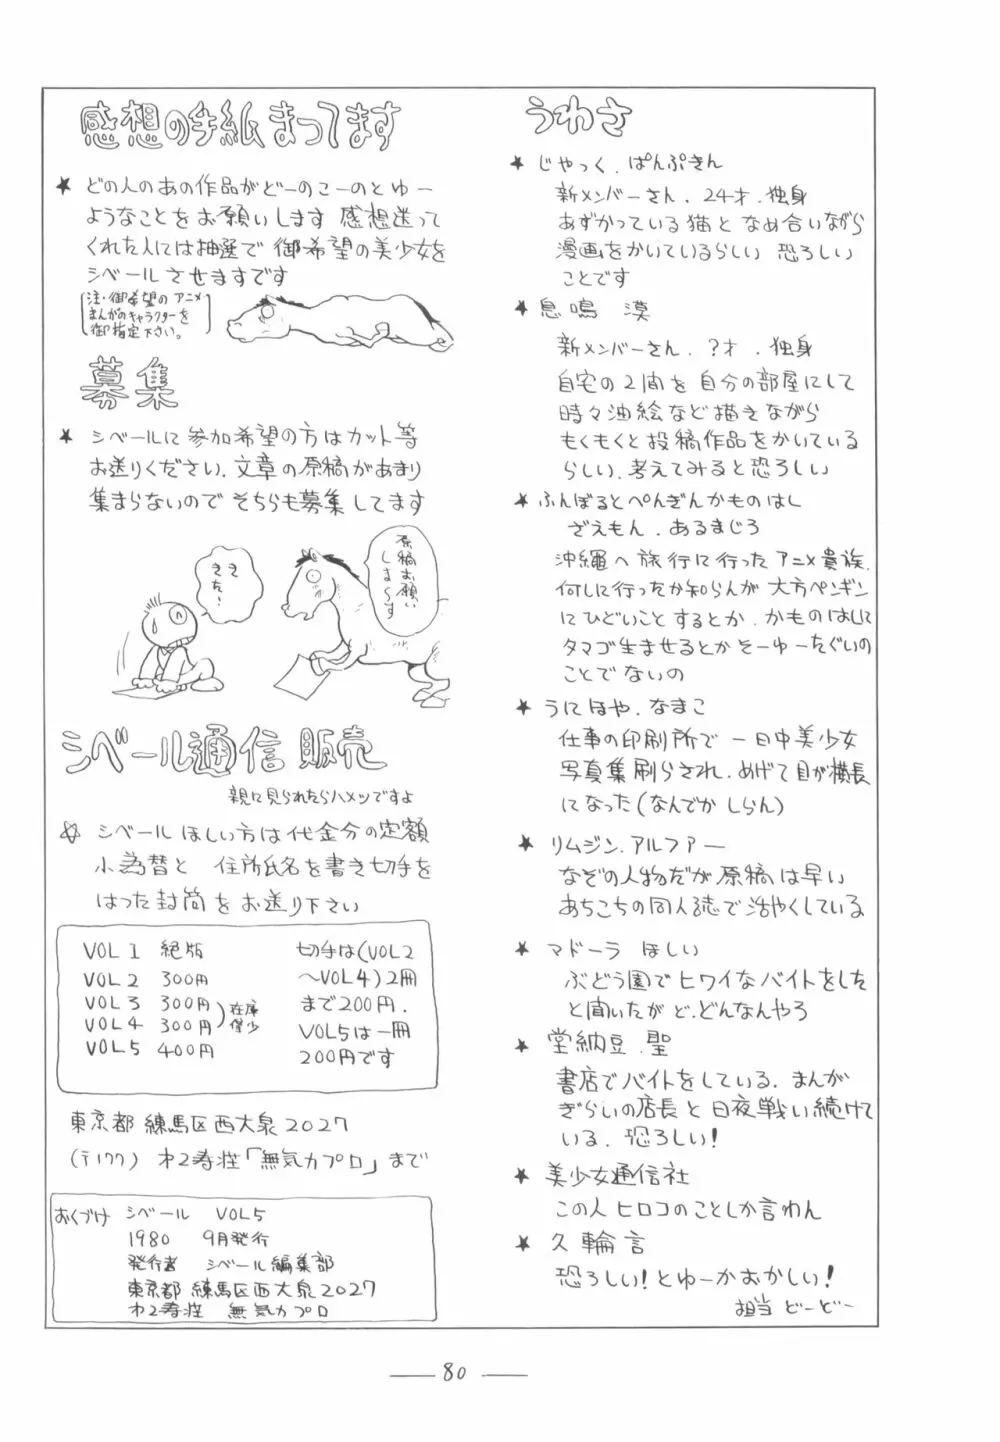 感想の手紙まってます
★ どの人のあの作品がどーのこーのとゆー
ようなことをお願いします 感想送って
くれた人には抽選で 御希望の美少女を
シベールさせますです
注・御希望のアニメ
まんがのキャラクターを
御指定下さい。
募集
★ シベールに参加希望の方はカット等
お送りください.文章の原稿があまり
集まらないので そちらも募集してます
原稿お願い
しま〜す
きた〜
シベール通信販売
親に見られたらハメツですよ
☆ シベールほしい方は代金分の定額
小為替と 住所氏名を書き切手を
はった封筒をお送り下さい
VOL1 絶版
VOL2 300円
VOL3 300円
VOL4 300円
在庫
僅少
VOL5 400円
切手は(VOL2
〜VOL4)2冊
まで200円.
VOL5は一冊
200円です
東京都練馬区西大泉2027
(〒177) 才2寿荘「無気力プロ」まで
おくづけ シベール VOL5
1980 9月発行
発行者 シベール編集部
東京都練馬区西大泉2027
才2寿荘 無気力プロ
うわさ
★ じゃっく.ぱんぷきん
新メンバーさん.24才.独身
あずかっている猫と なめ合いながら
漫画をかいているらしい 恐ろしい
ことです
★ 息鳴 漠
新メンバーさん.?才.独身
自宅の2間を自分の部屋にして
時々油絵など描きながら
もくもくと投稿作品をかいている
らしい.考えてみると恐ろしい
★ ふんぼるとぺんぎんかものはし
ざえもん.あるまじろ
沖縄へ旅行に行ったアニメ貴族.
何しに行ったか知らんが 大方ペンギン
にひどいことするとか.かものはしに
タマゴ生ませるとかそーゆーたぐいの
ことでないの
★ うにほや.なまこ
仕事の印刷所で 一日中美少女
写真集刷らされ.あげて目が横長
になった(なんでか しらん)
★ リムジン.アルファー
なぞの人物だが原稿は早い
あちこちの同人誌で活やくしている
★ マドーラ ほしい
ぶどう園でヒワイなバイトをした
と聞いたが ど.どんなんやろ
★ 堂納豆.聖
書店でバイトをしている.まんが
ぎらいの店長と日夜戦い続けて
いる.恐ろしい!
★ 美少女通信社
この人 ヒロコのことしか言わん
★ 久輪言
恐ろしい!とゆーかおかしい!
担当 どーどー
— 80 —